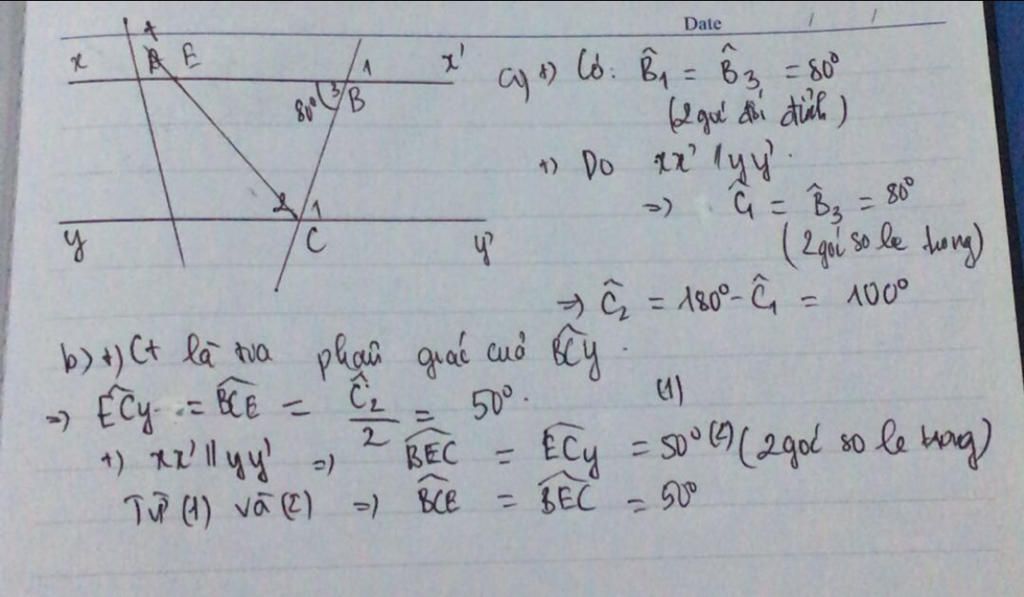 Date / /
t
x A E 1 x'
80° 3 B
2 1
y C y'
a) +) Có: B̂₁ = B̂₃ = 80°
(2 góc đối đỉnh)
+) Do xx' // yy'.
=> Ĉ₁ = B̂₃ = 80°
(2 góc so le trong)
=> Ĉ₂ = 180° - Ĉ₁ = 100°
b) +) Ct là tia phân giác của B̂Cy.
=> ÊCy = B̂CE = Ĉ₂/2 = 50°. (1)
+) xx' // yy' => B̂EC = ÊCy = 50° (2) (2 góc so le trong)
Từ (1) và (2) => B̂CE = B̂EC = 50°